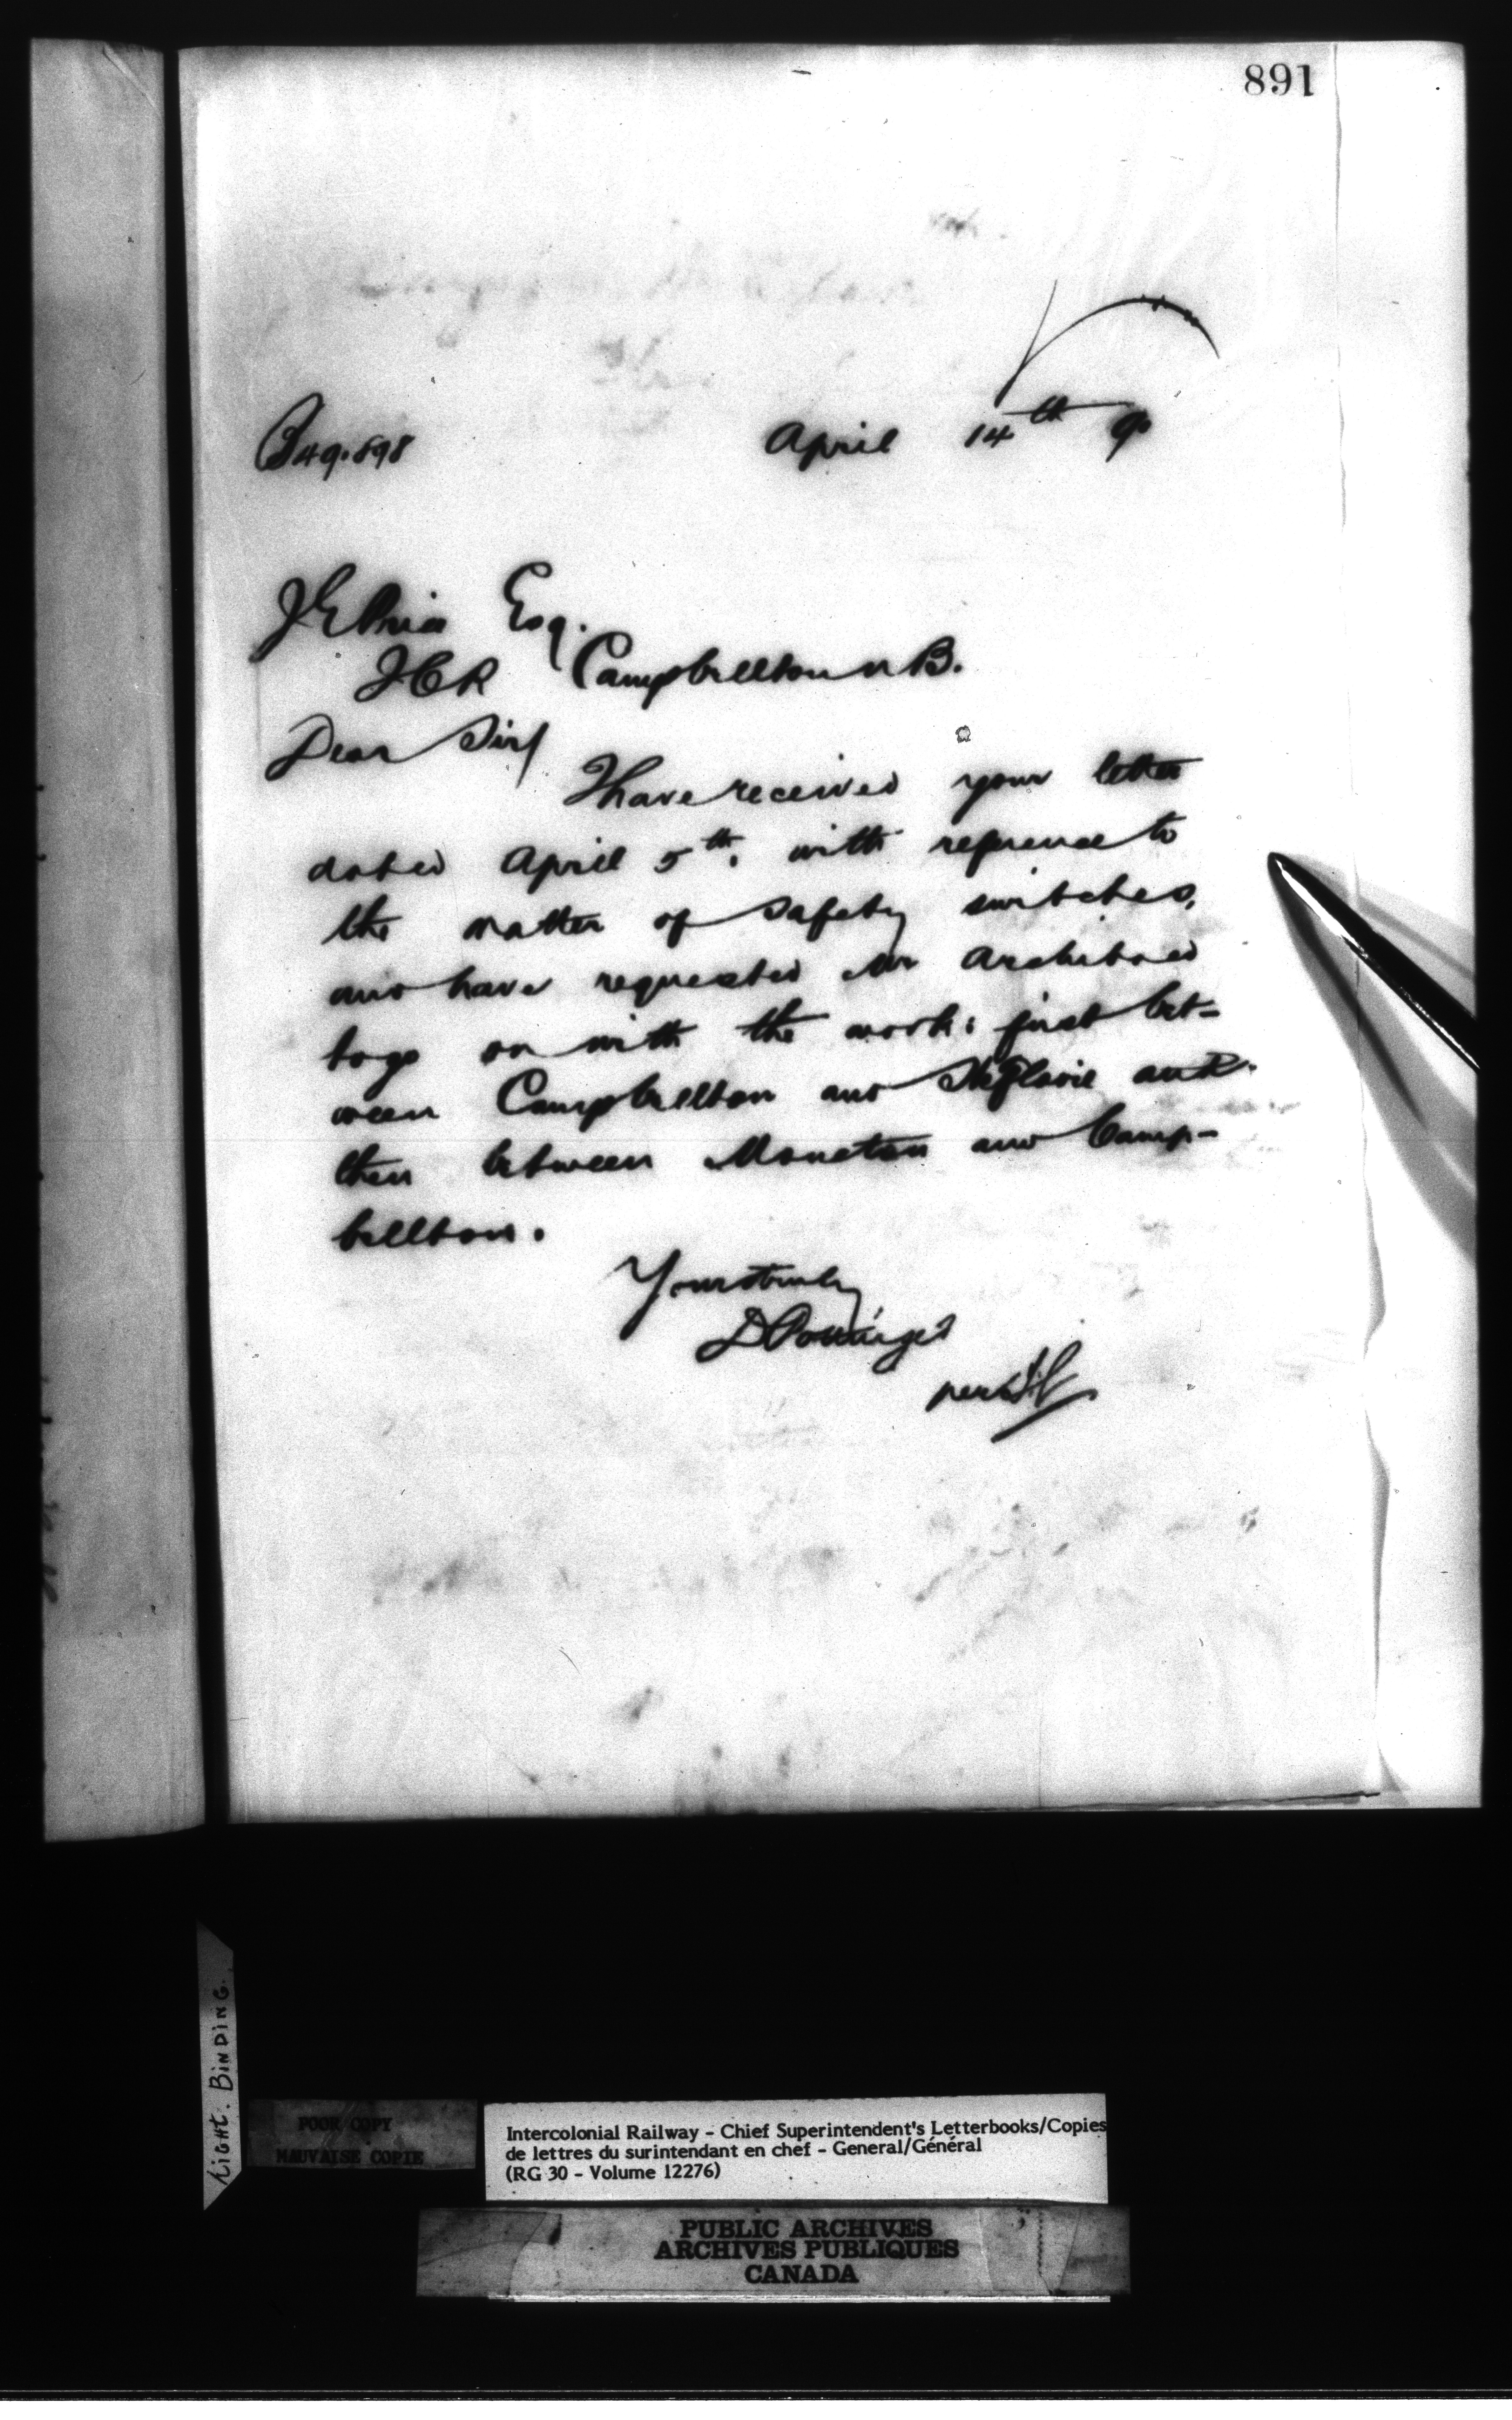 891
B 49.898
April 14th 90
J E Price Esq.
I C R Campbellton N B.
Dear Sir/
I have received your letter
dated April 5th. with reference to
the matter of safety switches,
and have requested Mr Archibald
to go on with the work: first bet-
ween Campbellton and Ste Flavie and
then between Moncton and Camp-
bellton.
Yours truly
D Pottinger
per
TIGHT. BINDING.
POOR COPY
MAUVAISE COPIE
Intercolonial Railway - Chief Superintendent's Letterbooks/Copies
de lettres du surintendant en chef - General/Général
(RG 30 - Volume 12276)
PUBLIC ARCHIVES
ARCHIVES PUBLIQUES
CANADA